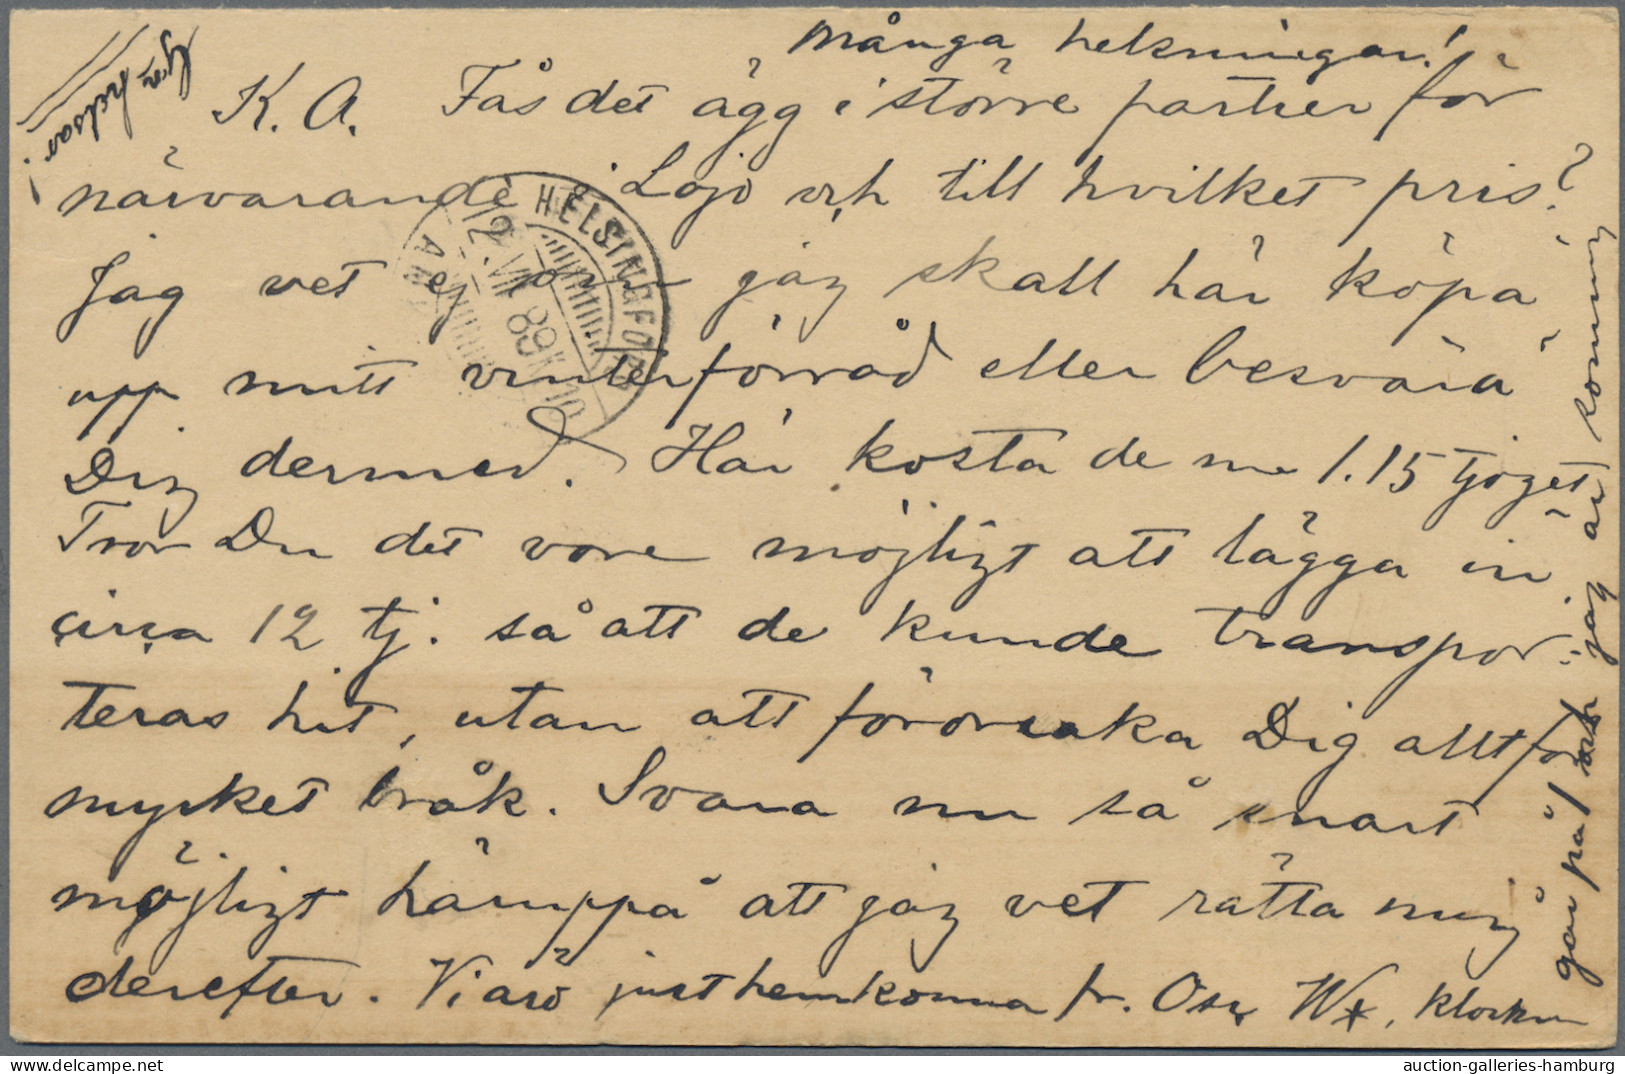 Många helsningar!
K. A. Fås det ägg i större partier för
närvarande i Lojo och till hvilket pris?
Jag vet ej om jag skall här köpa
upp mitt vinterförråd eller besvära
Dig dermed. Här kosta de m 1.15 tjoget
Tror Du det vore möjligt att lägga in
circa 12 tj. så att de kunde transpor-
teras hit, utan att förorsaka Dig alltför
mycket bråk. Svara nu så snart
möjligt härpå att jag vet rätta mig
derefter. Vi äro just hemkomna fr. Osc. W, klockan
går på 1 och jag är sömnig
helsar!
HELSINGFORS
12 VII 89
auction-galleries-hamburg